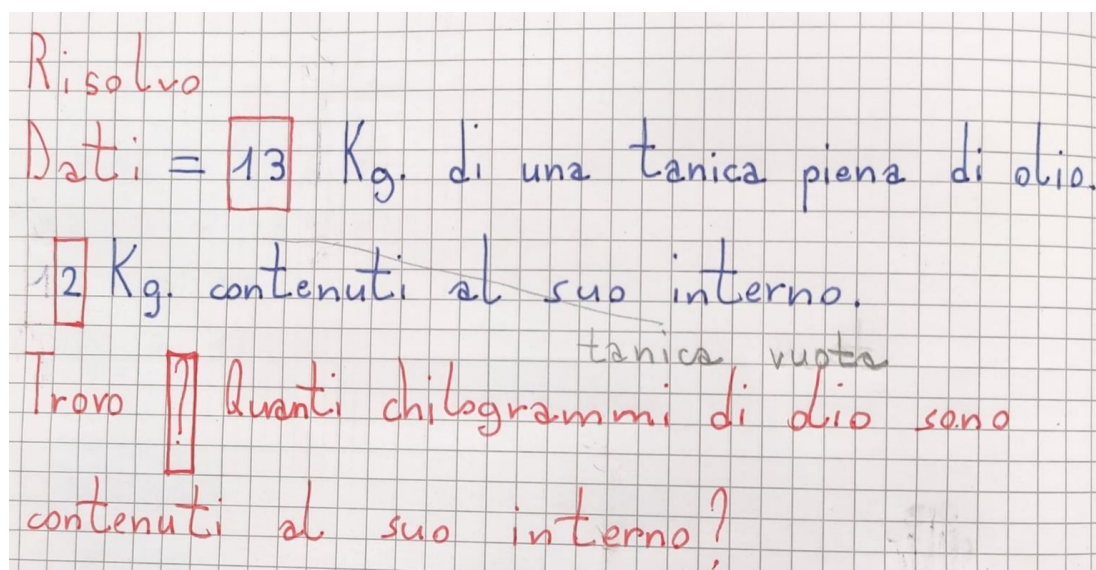 Risolvo
Dati = 13 Kg. di una tanica piena di olio.
2 Kg. contenuti al suo interno.
tanica vuota
Trovo ? Quanti chilogrammi di olio sono
contenuti al suo interno?